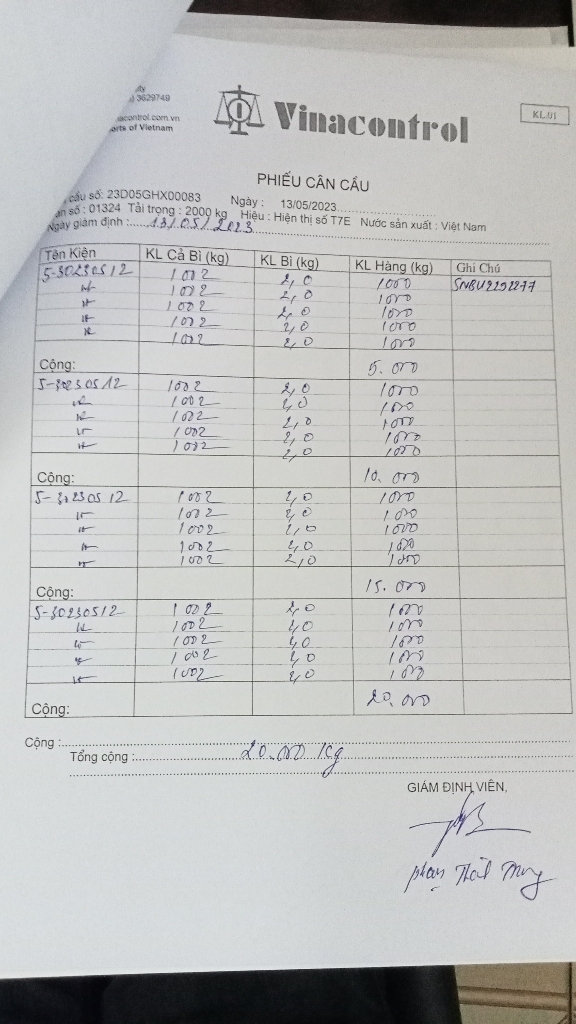 3629749
acontrol.com.vn
orts of Vietnam
Vinacontrol
KL.01
PHIẾU CÂN CẨU
cẩu số: 23D05GHX00083 Ngày : 13/05/2023
ân số : 01324 Tải trọng : 2000 kg Hiệu : Hiện thị số T7E Nước sản xuất : Việt Nam
Ngày giám định : 13/05/2023
Tên Kiện KL Cả Bì (kg) KL Bì (kg) KL Hàng (kg) Ghi Chú
5-30230512 1002 2,0 1000 SNBU2292277
〃 1002 2,0 1000
〃 1002 2,0 1000
〃 1002 2,0 1000
〃 1002 2,0 1000
Cộng: 5.000
5-30230512 1002 2,0 1000
〃 1002 2,0 1000
〃 1002 2,0 1000
〃 1002 2,0 1000
〃 1002 2,0 1000
Cộng: 10.000
5-30230512 1002 2,0 1000
〃 1002 2,0 1000
〃 1002 2,0 1000
〃 1002 2,0 1000
〃 1002 2,0 1000
Cộng: 15.000
5-30230512 1002 2,0 1000
〃 1002 2,0 1000
〃 1002 2,0 1000
〃 1002 2,0 1000
〃 1002 2,0 1000
Cộng: 20.000
Cộng :
Tổng cộng : 20.000 Kg
GIÁM ĐỊNH VIÊN,
Phạm